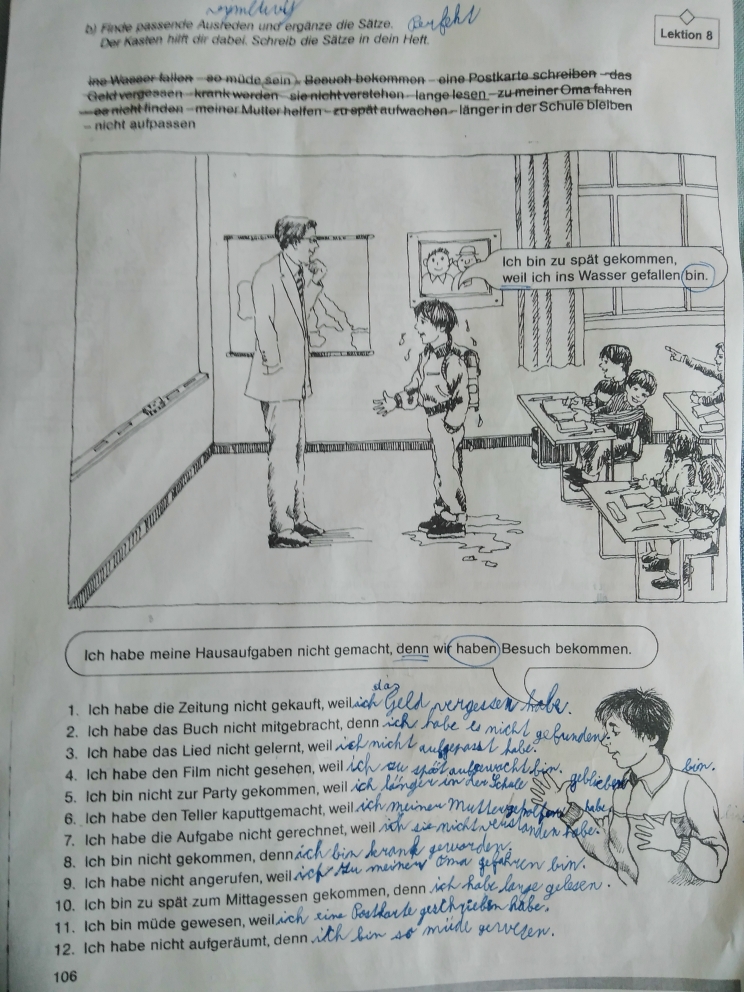 Perfekt
b) Finde passende Ausreden und ergänze die Sätze.
Der Kasten hilft dir dabei. Schreib die Sätze in dein Heft.
Lektion 8
ins Wasser fallen – so müde sein – Besuch bekommen – eine Postkarte schreiben – das
Geld vergessen – krank werden – sie nicht verstehen – lange lesen – zu meiner Oma fahren
– es nicht finden – meiner Mutter helfen – zu spät aufwachen – länger in der Schule bleiben
– nicht aufpassen
Ich bin zu spät gekommen,
weil ich ins Wasser gefallen bin.
Ich habe meine Hausaufgaben nicht gemacht, denn wir haben Besuch bekommen.
1. Ich habe die Zeitung nicht gekauft, weil ich das Geld vergessen habe.
2. Ich habe das Buch nicht mitgebracht, denn ich habe es nicht gefunden.
3. Ich habe das Lied nicht gelernt, weil ich nicht aufgepasst habe.
4. Ich habe den Film nicht gesehen, weil ich zu spät aufgewacht bin.
5. Ich bin nicht zur Party gekommen, weil ich länger in der Schule geblieben bin.
6. Ich habe den Teller kaputtgemacht, weil ich meiner Mutter geholfen habe.
7. Ich habe die Aufgabe nicht gerechnet, weil ich sie nicht verstanden habe.
8. Ich bin nicht gekommen, denn ich bin krank geworden.
9. Ich habe nicht angerufen, weil ich zu meiner Oma gefahren bin.
10. Ich bin zu spät zum Mittagessen gekommen, denn ich habe lange gelesen.
11. Ich bin müde gewesen, weil ich eine Postkarte geschrieben habe.
12. Ich habe nicht aufgeräumt, denn ich bin so müde gewesen.
106